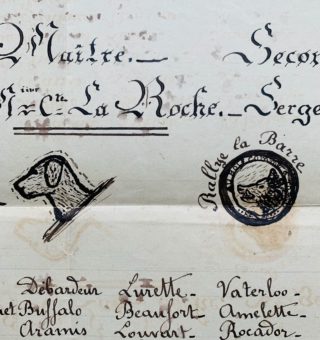 Maître.— Secon
Mr Cte La Roche.— Serge
Rallye la Barre
Débardeur Lurette— Vaterloo—
et Buffalo Beaufort— Amelette—
Aramis Louvart— Rocador—